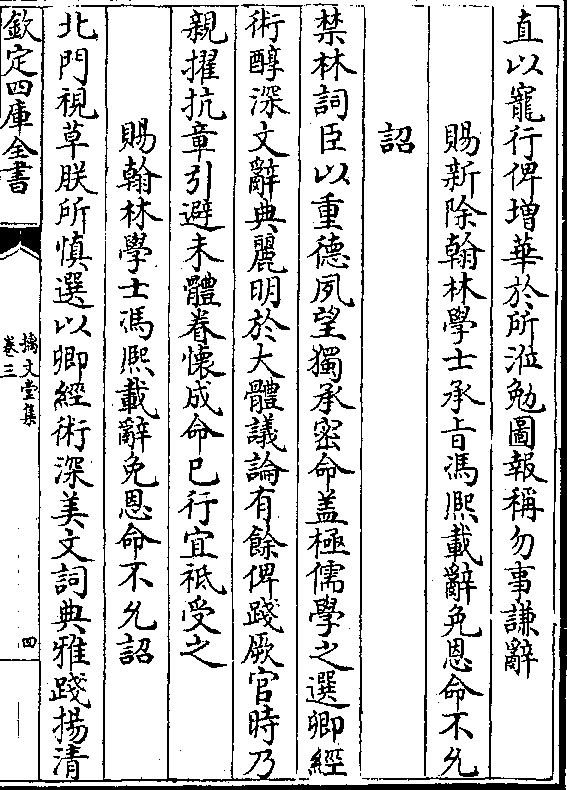 直以寵行俾増華於所涖勉圖報稱勿事謙辭
賜新除翰林學士承旨馮熈載辭免恩命不允
詔
禁林詞臣以重德夙望獨承密命盖極儒學之選卿經
術醇深文辭典麗明於大體議論有餘俾踐厥官時乃
親擢抗章引避未體眷懷成命已行宜祗受之
賜翰林學士馮熈載辭免恩命不允詔
北門視草朕所慎選以卿經術深美文詞典雅踐揚清
欽定四庫全書
摛文堂集
卷三
四